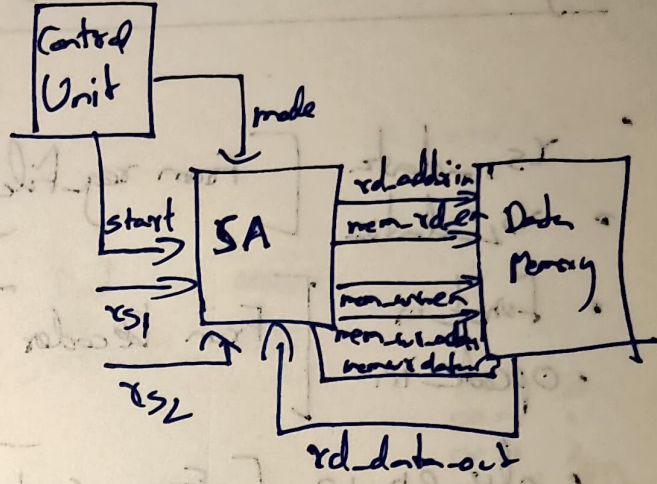 Control
Unit
mode
start
SA
rs1
rs2
rd_addr_in
mem_rd_en
mem_wr_en
mem_wr_addr
mem_wr_data
Data
Memory
rd_data_out